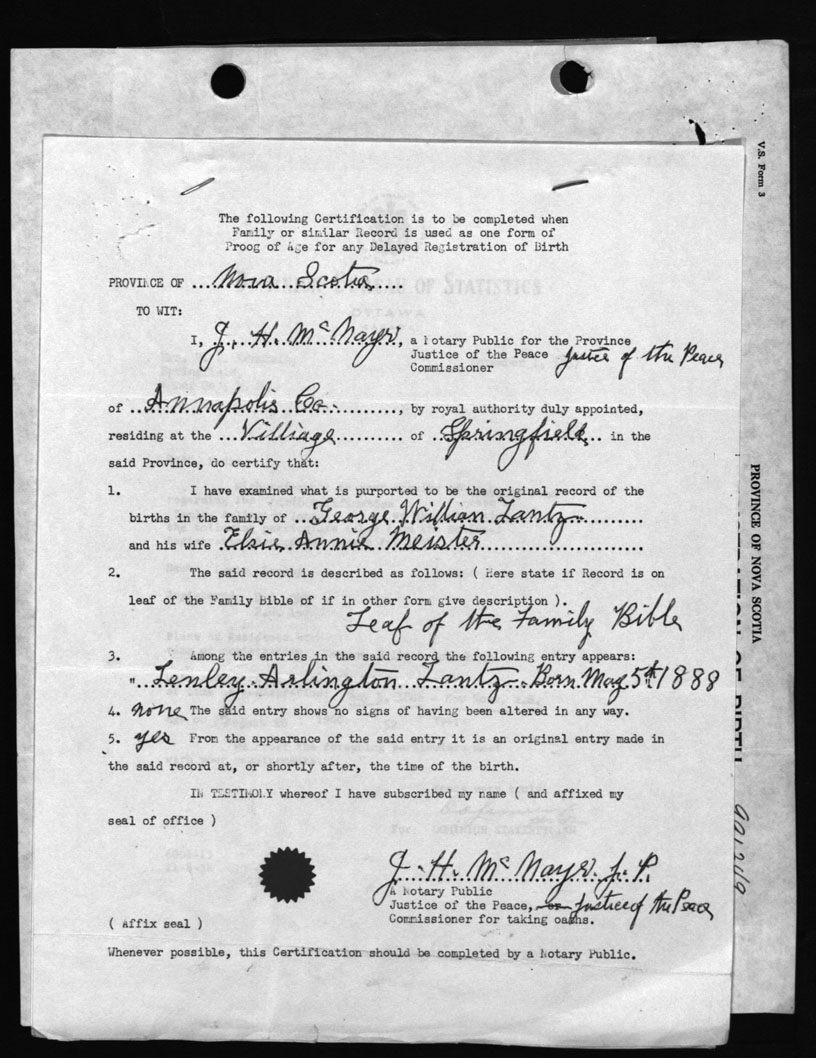 V.S. Form 3
The following Certification is to be completed when
Family or similar Record is used as one form of
Proog of Age for any Delayed Registration of Birth
PROVINCE OF ....Nova Scotia....
TO WIT:
I, J. H. McNayr, a Notary Public for the Province
Justice of the Peace Justice of the Peace
Commissioner
of ..Annapolis Co..........., by royal authority duly appointed,
residing at the ...Villiage.......... of ..Springfield... in the
said Province, do certify that:
1. I have examined what is purported to be the original record of the
births in the family of ...George William Lantz.........
and his wife .Elsie Annie Meister.....................
2. The said record is described as follows: ( Here state if Record is on
leaf of the Family Bible of if in other form give description ).
Leaf of the Family Bible
3. Among the entries in the said record the following entry appears:
"..Lenley Arlington Lantz Born May 5th 1888
4. none The said entry shows no signs of having been altered in any way.
5. yes From the appearance of the said entry it is an original entry made in
the said record at, or shortly after, the time of the birth.
IN TESTIMONY whereof I have subscribed my name ( and affixed my
seal of office )
J. H. McNayr. J. P.
A Notary Public
Justice of the Peace, or Justice of the Peace
Commissioner for taking oaths.
( Affix seal )
Whenever possible, this Certification should be completed by a Notary Public.
PROVINCE OF NOVA SCOTIA
OF BIRTH